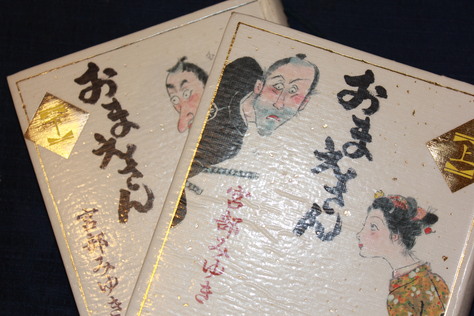 おまえさん
宮部みゆき
おまえさん
宮部みゆき
上